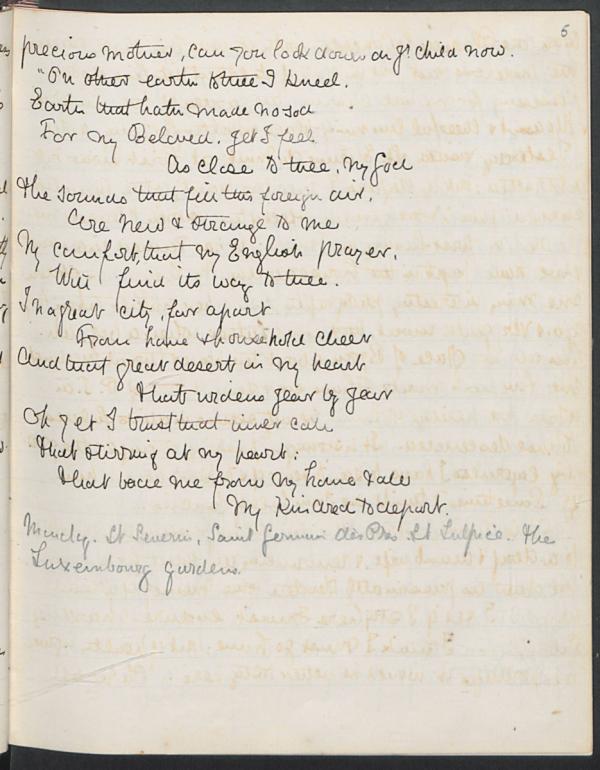 5
precious mother, can you look down on yr child now.
"On other earth to thee I kneel.
Earth that hath made no sod
For my Beloved. yet I feel
As close to thee, my God
The sounds that fill this foreign air.
Are new & strange to me
My comfort, that my English prayer,
Will find its way to thee.
In a great city, far apart
From home & household cheer
And that great desert in my heart
That widens year by year
Oh yet I trust that inner call
That stirring at my heart:
That bade me from my home & all
My Kindred to depart.
Monday. St Severin, Saint Germain des Pres. St Sulpice. The
Luxembourg gardens.